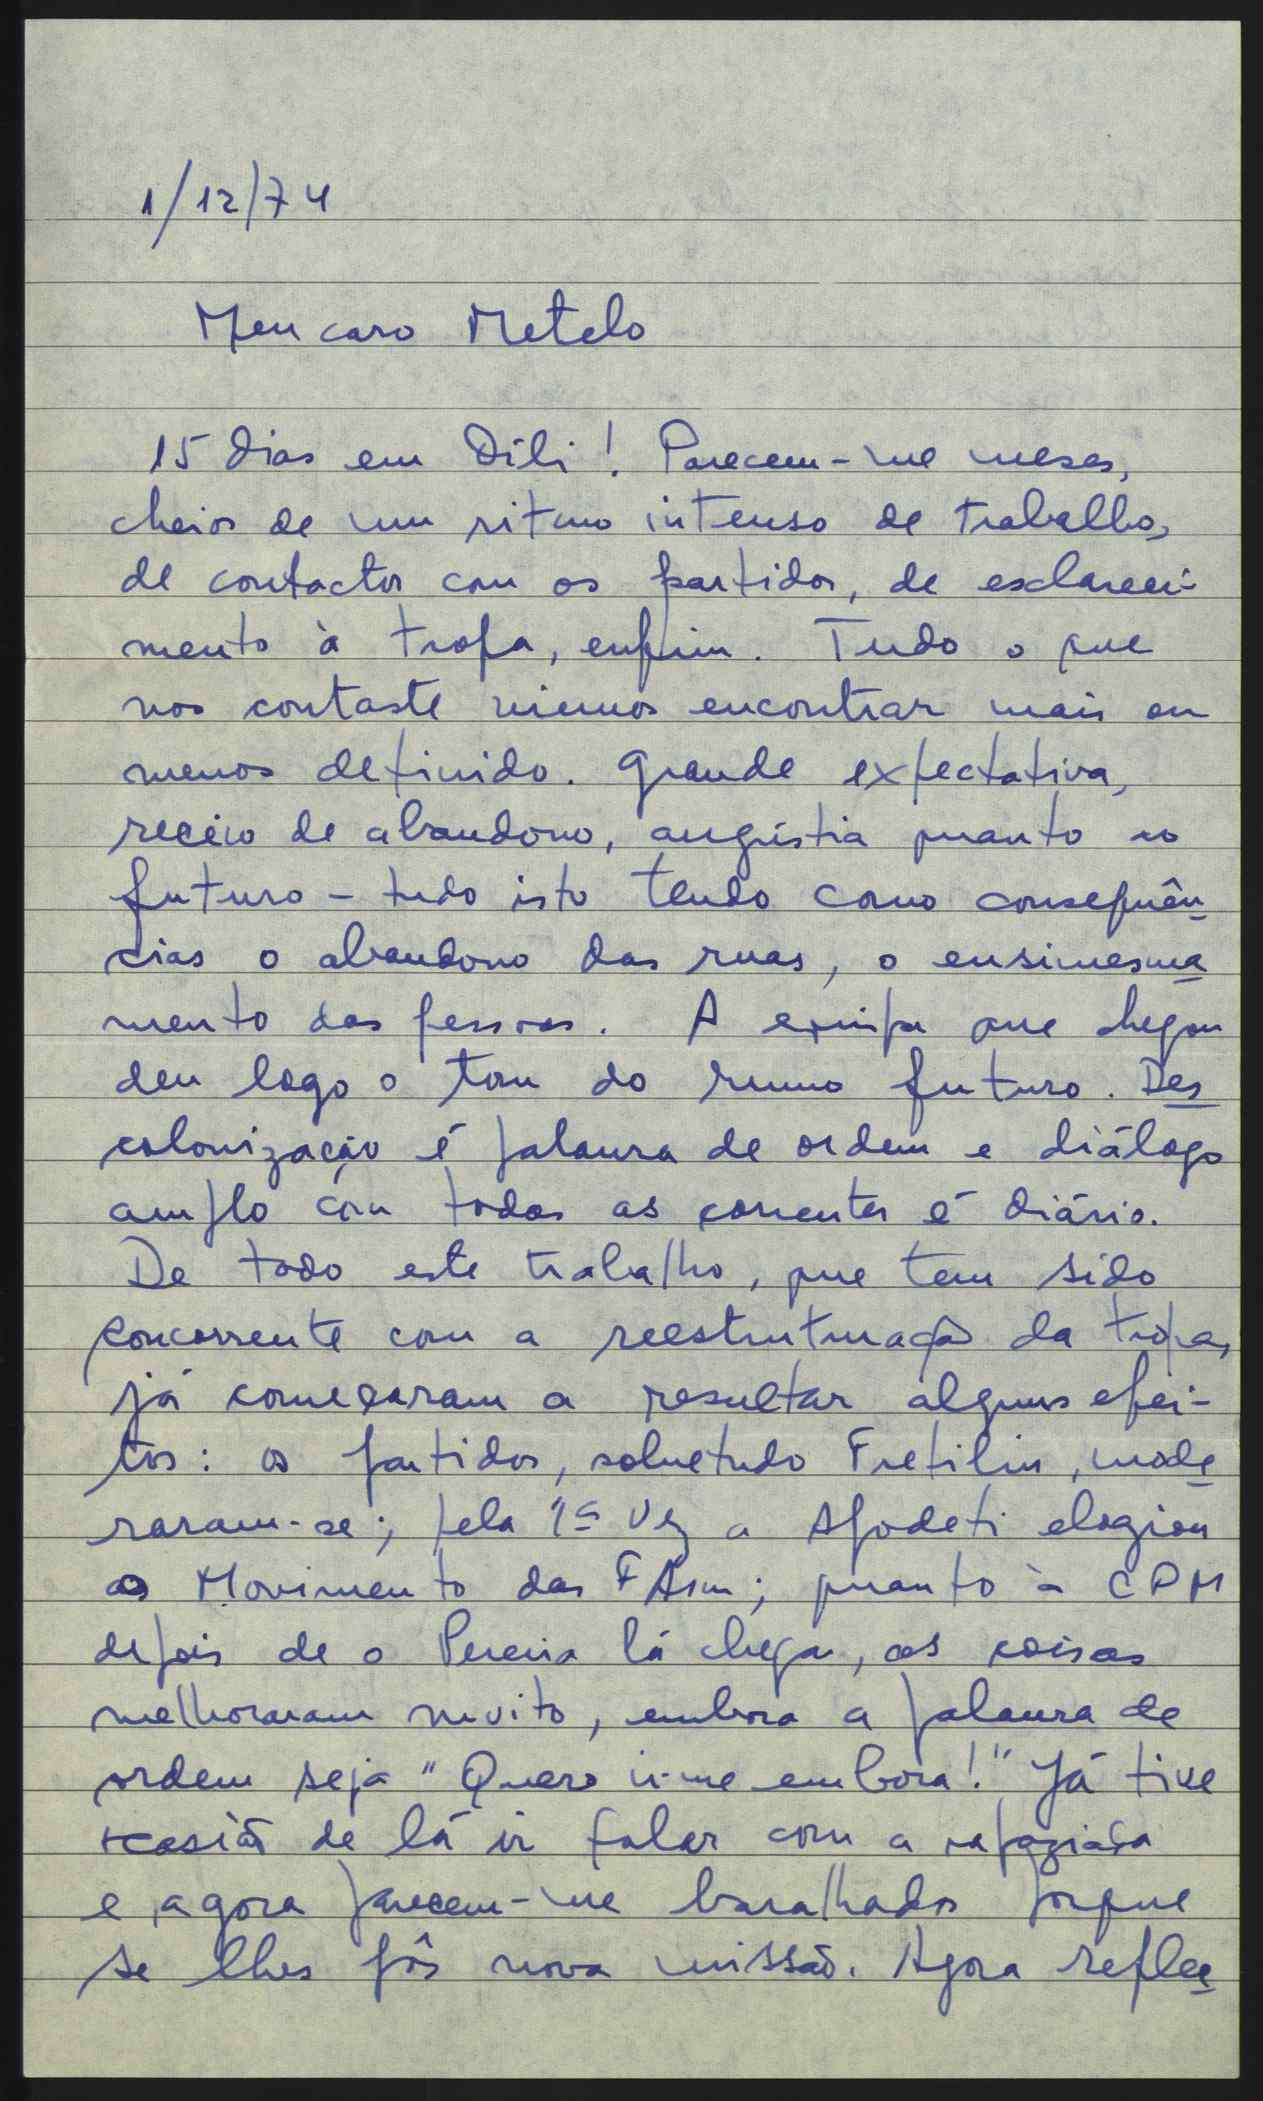 1/12/74
Meu caro Metelo
15 dias em Dili! Parecem-me meses,
cheios de um ritmo intenso de trabalho,
de contactos com os partidos, de esclareci-
mento à tropa, enfim. Tudo o que
nos contaste viemos encontrar mais ou
menos definido. Grande expectativa,
receio de abandono, angústia quanto ao
futuro - tudo isto tendo como consequên
cias o abandono das ruas, o ensimesma
mento das pessoas. A equipa que chegou
deu logo o tom do rumo futuro. Des
colonização é palavra de ordem e diálogo
amplo com todas as correntes é diário.
De todo este trabalho, que tem sido
concorrente com a reestruturação da tropa,
já começaram a resultar alguns efei-
tos: os partidos, sobretudo Fretilin, mode
raram-se; pela 1ª vez a Apodeti elogiou
o Movimento das FArm; quanto à CPM
depois de o Pereira lá chegar, as coisas
melhoraram muito, embora a palavra de
ordem seja "Quero ir-me embora!" Já tive
ocasião de lá ir falar com a rapaziada
e agora parecem-me baralhados porque
se lhes pôs nova missão. Agora reflec